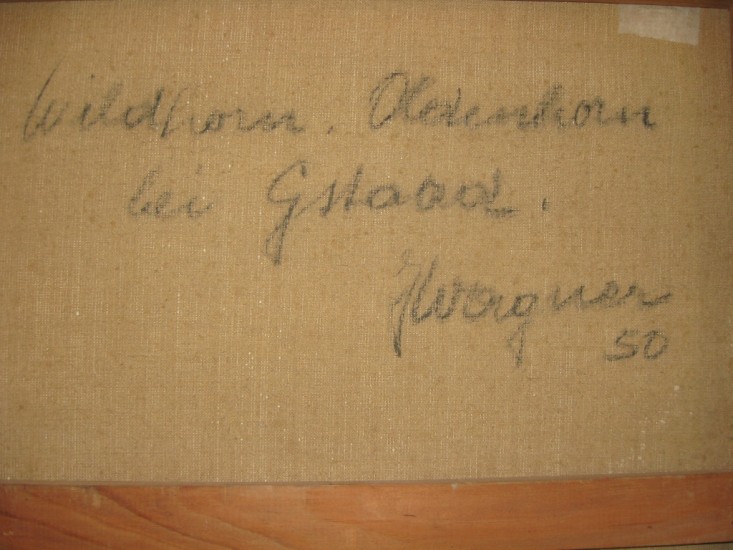 Wildhorn. Oldenhorn
bei Gstaad.
HWagner
50